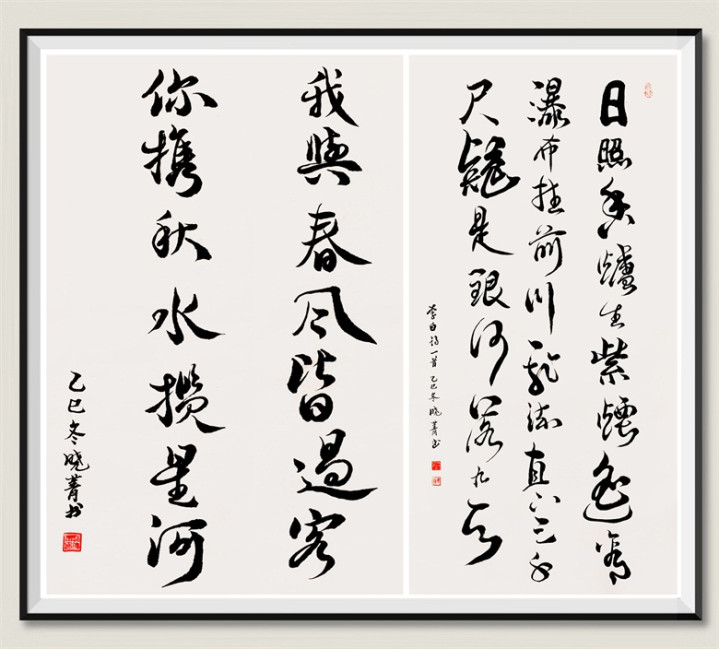 日照香爐生紫煙遙看
瀑布挂前川飛流直下三千
尺疑是銀河落九天
李白詩一首 乙巳冬曉菁书
我與春风皆過客
你携秋水揽星河
乙巳冬曉菁书